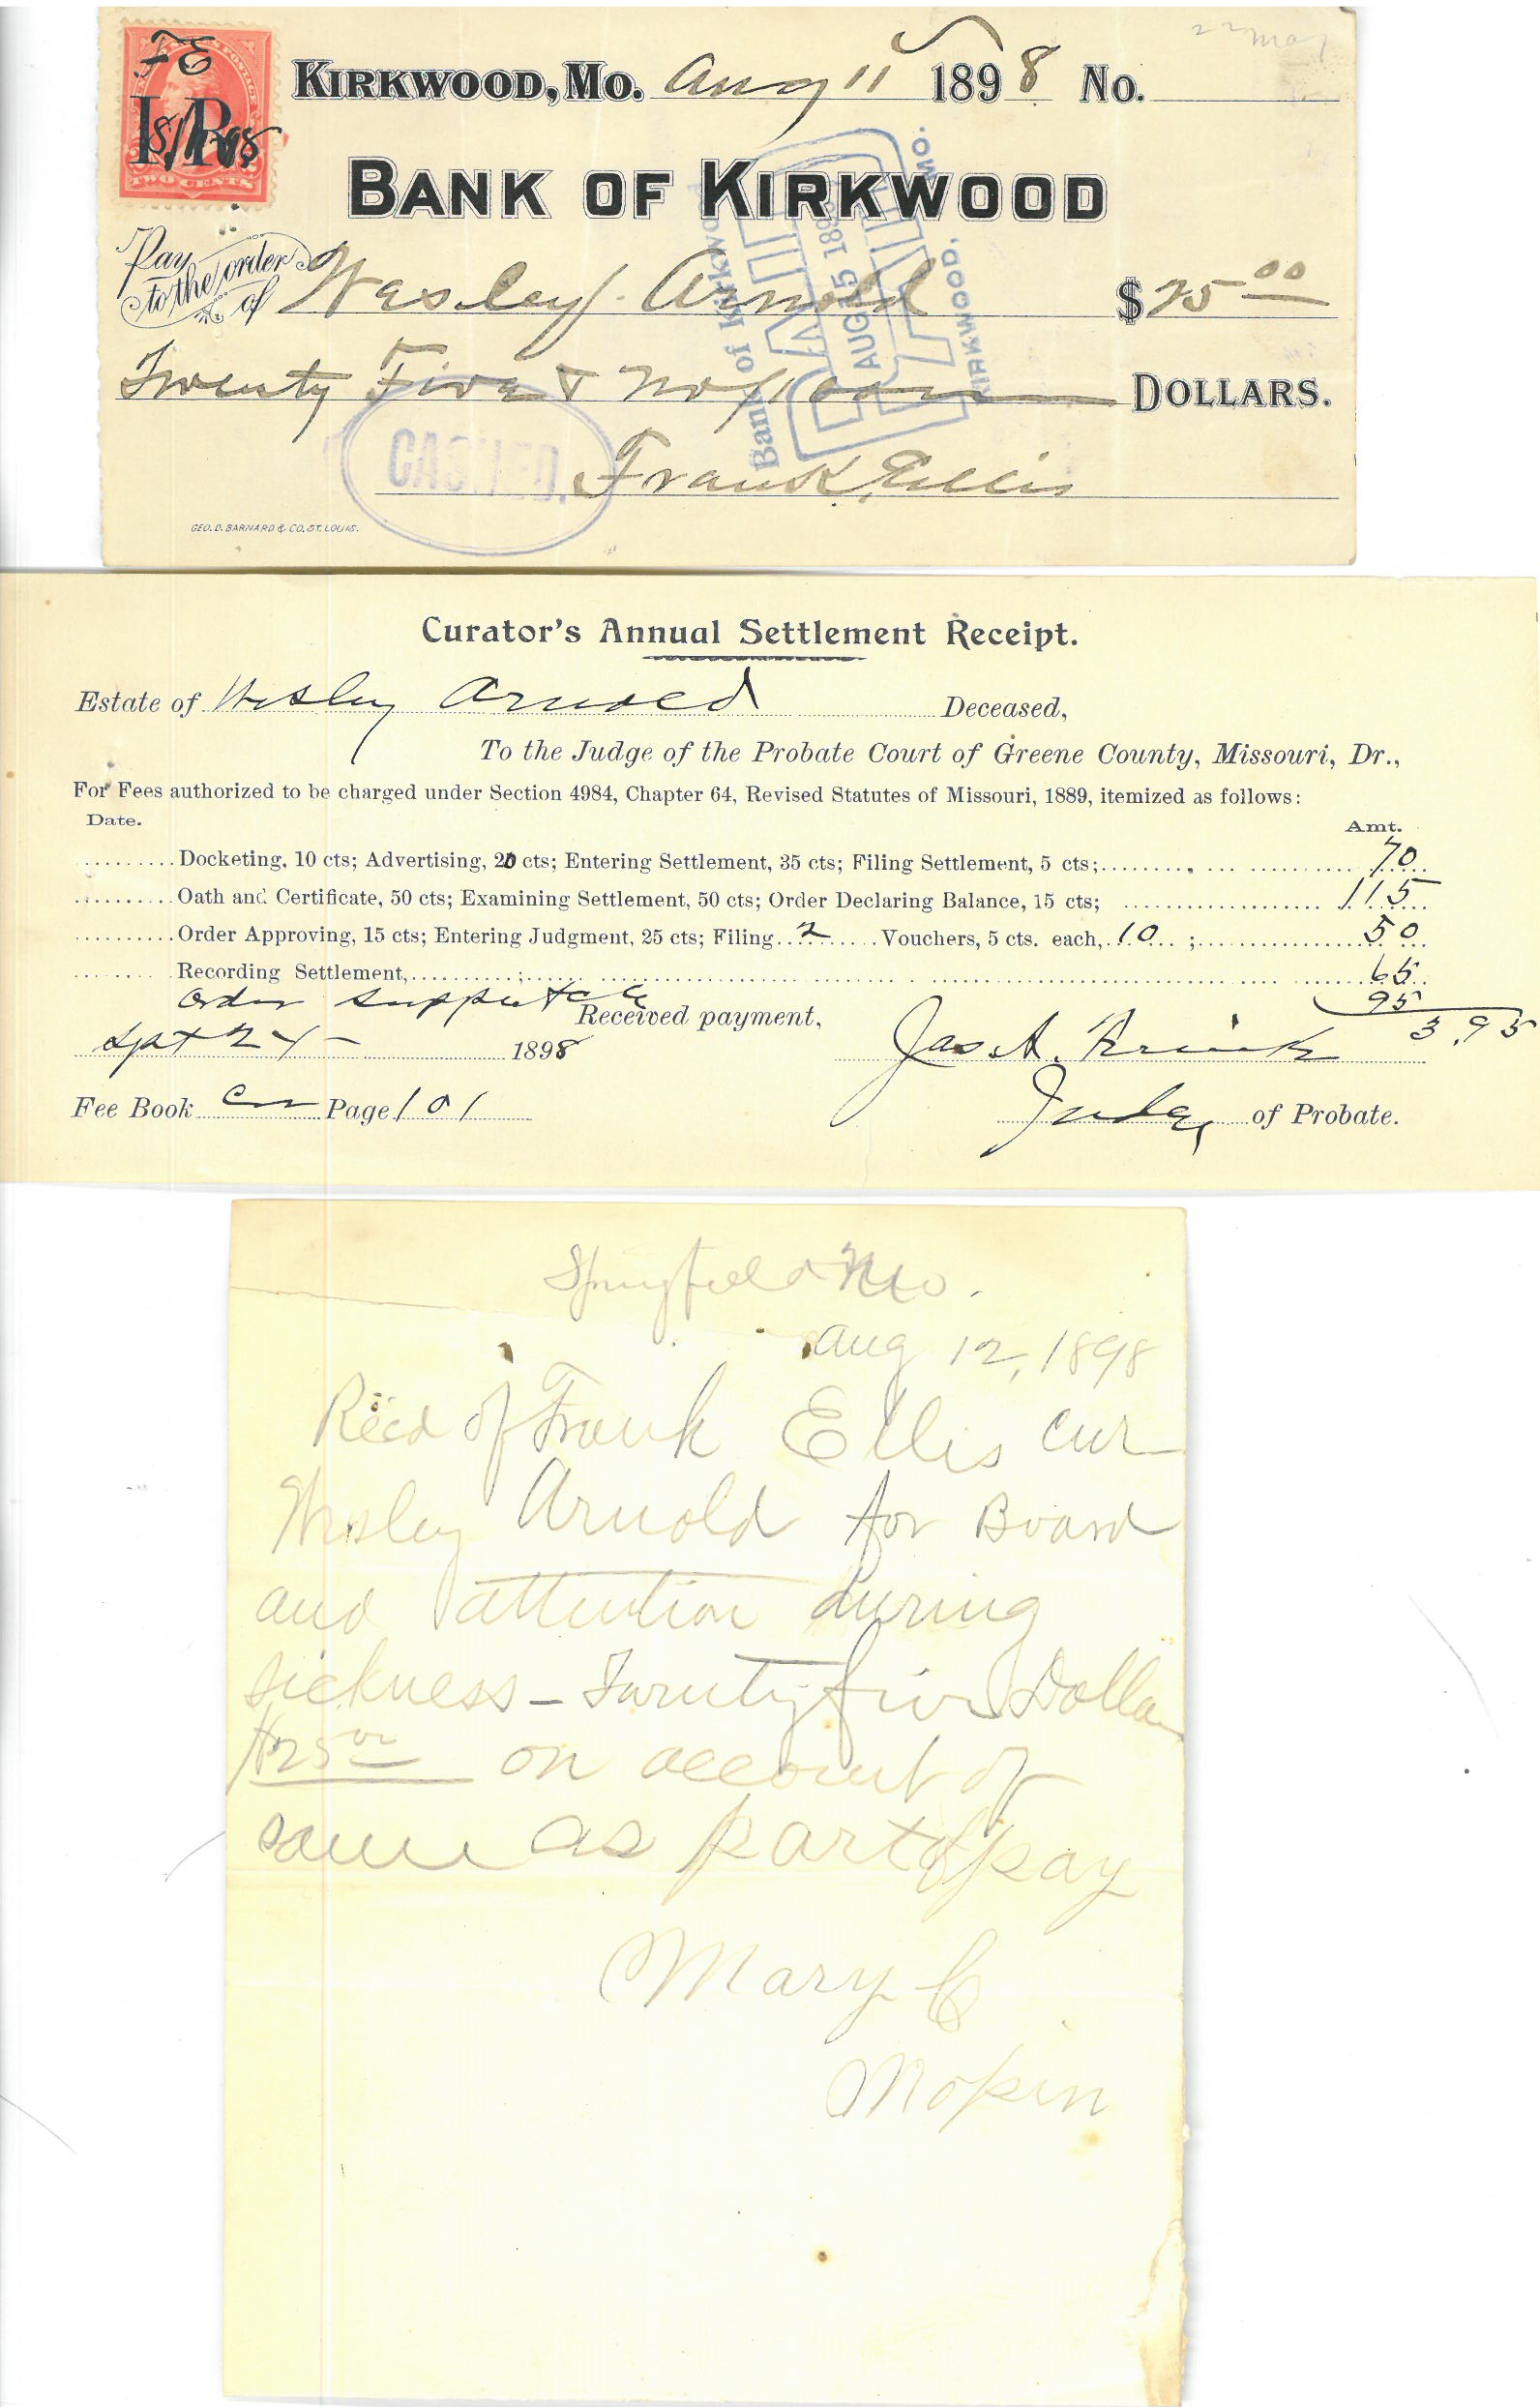 FE
I.R.
8/11/98
TWO CENTS
22 May
KIRKWOOD, MO. Aug 11 1898 No.
BANK OF KIRKWOOD
Pay to the order of Wesley Arnold $25.00
Twenty Five & no/100 DOLLARS.
Frank Ellis
Bank of Kirkwood
PAID
AUG 15 1898
KIRKWOOD, MO.
CASHED.
GEO. D. BARNARD & CO. ST. LOUIS.
Curator's Annual Settlement Receipt.
Estate of Wesley Arnold Deceased,
To the Judge of the Probate Court of Greene County, Missouri, Dr.,
For Fees authorized to be charged under Section 4984, Chapter 64, Revised Statutes of Missouri, 1889, itemized as follows:
Date. Amt.
Docketing, 10 cts; Advertising, 20 cts; Entering Settlement, 35 cts; Filing Settlement, 5 cts; 70
Oath and Certificate, 50 cts; Examining Settlement, 50 cts; Order Declaring Balance, 15 cts; 115
Order Approving, 15 cts; Entering Judgment, 25 cts; Filing 2 Vouchers, 5 cts. each, 10; 50
Recording Settlement, ; 65
Order 95
Received payment, 3.95
Sept 24 1898 Jas. A.
Fee Book Page 101 Judge of Probate.
Springfield Mo.
Aug 12, 1898
Recd of Frank Ellis cur
Wesley Arnold for Board
and attention during
sickness - Twenty five Dollar
$25 00 on account of
same as part pay
Mary C
Mopin